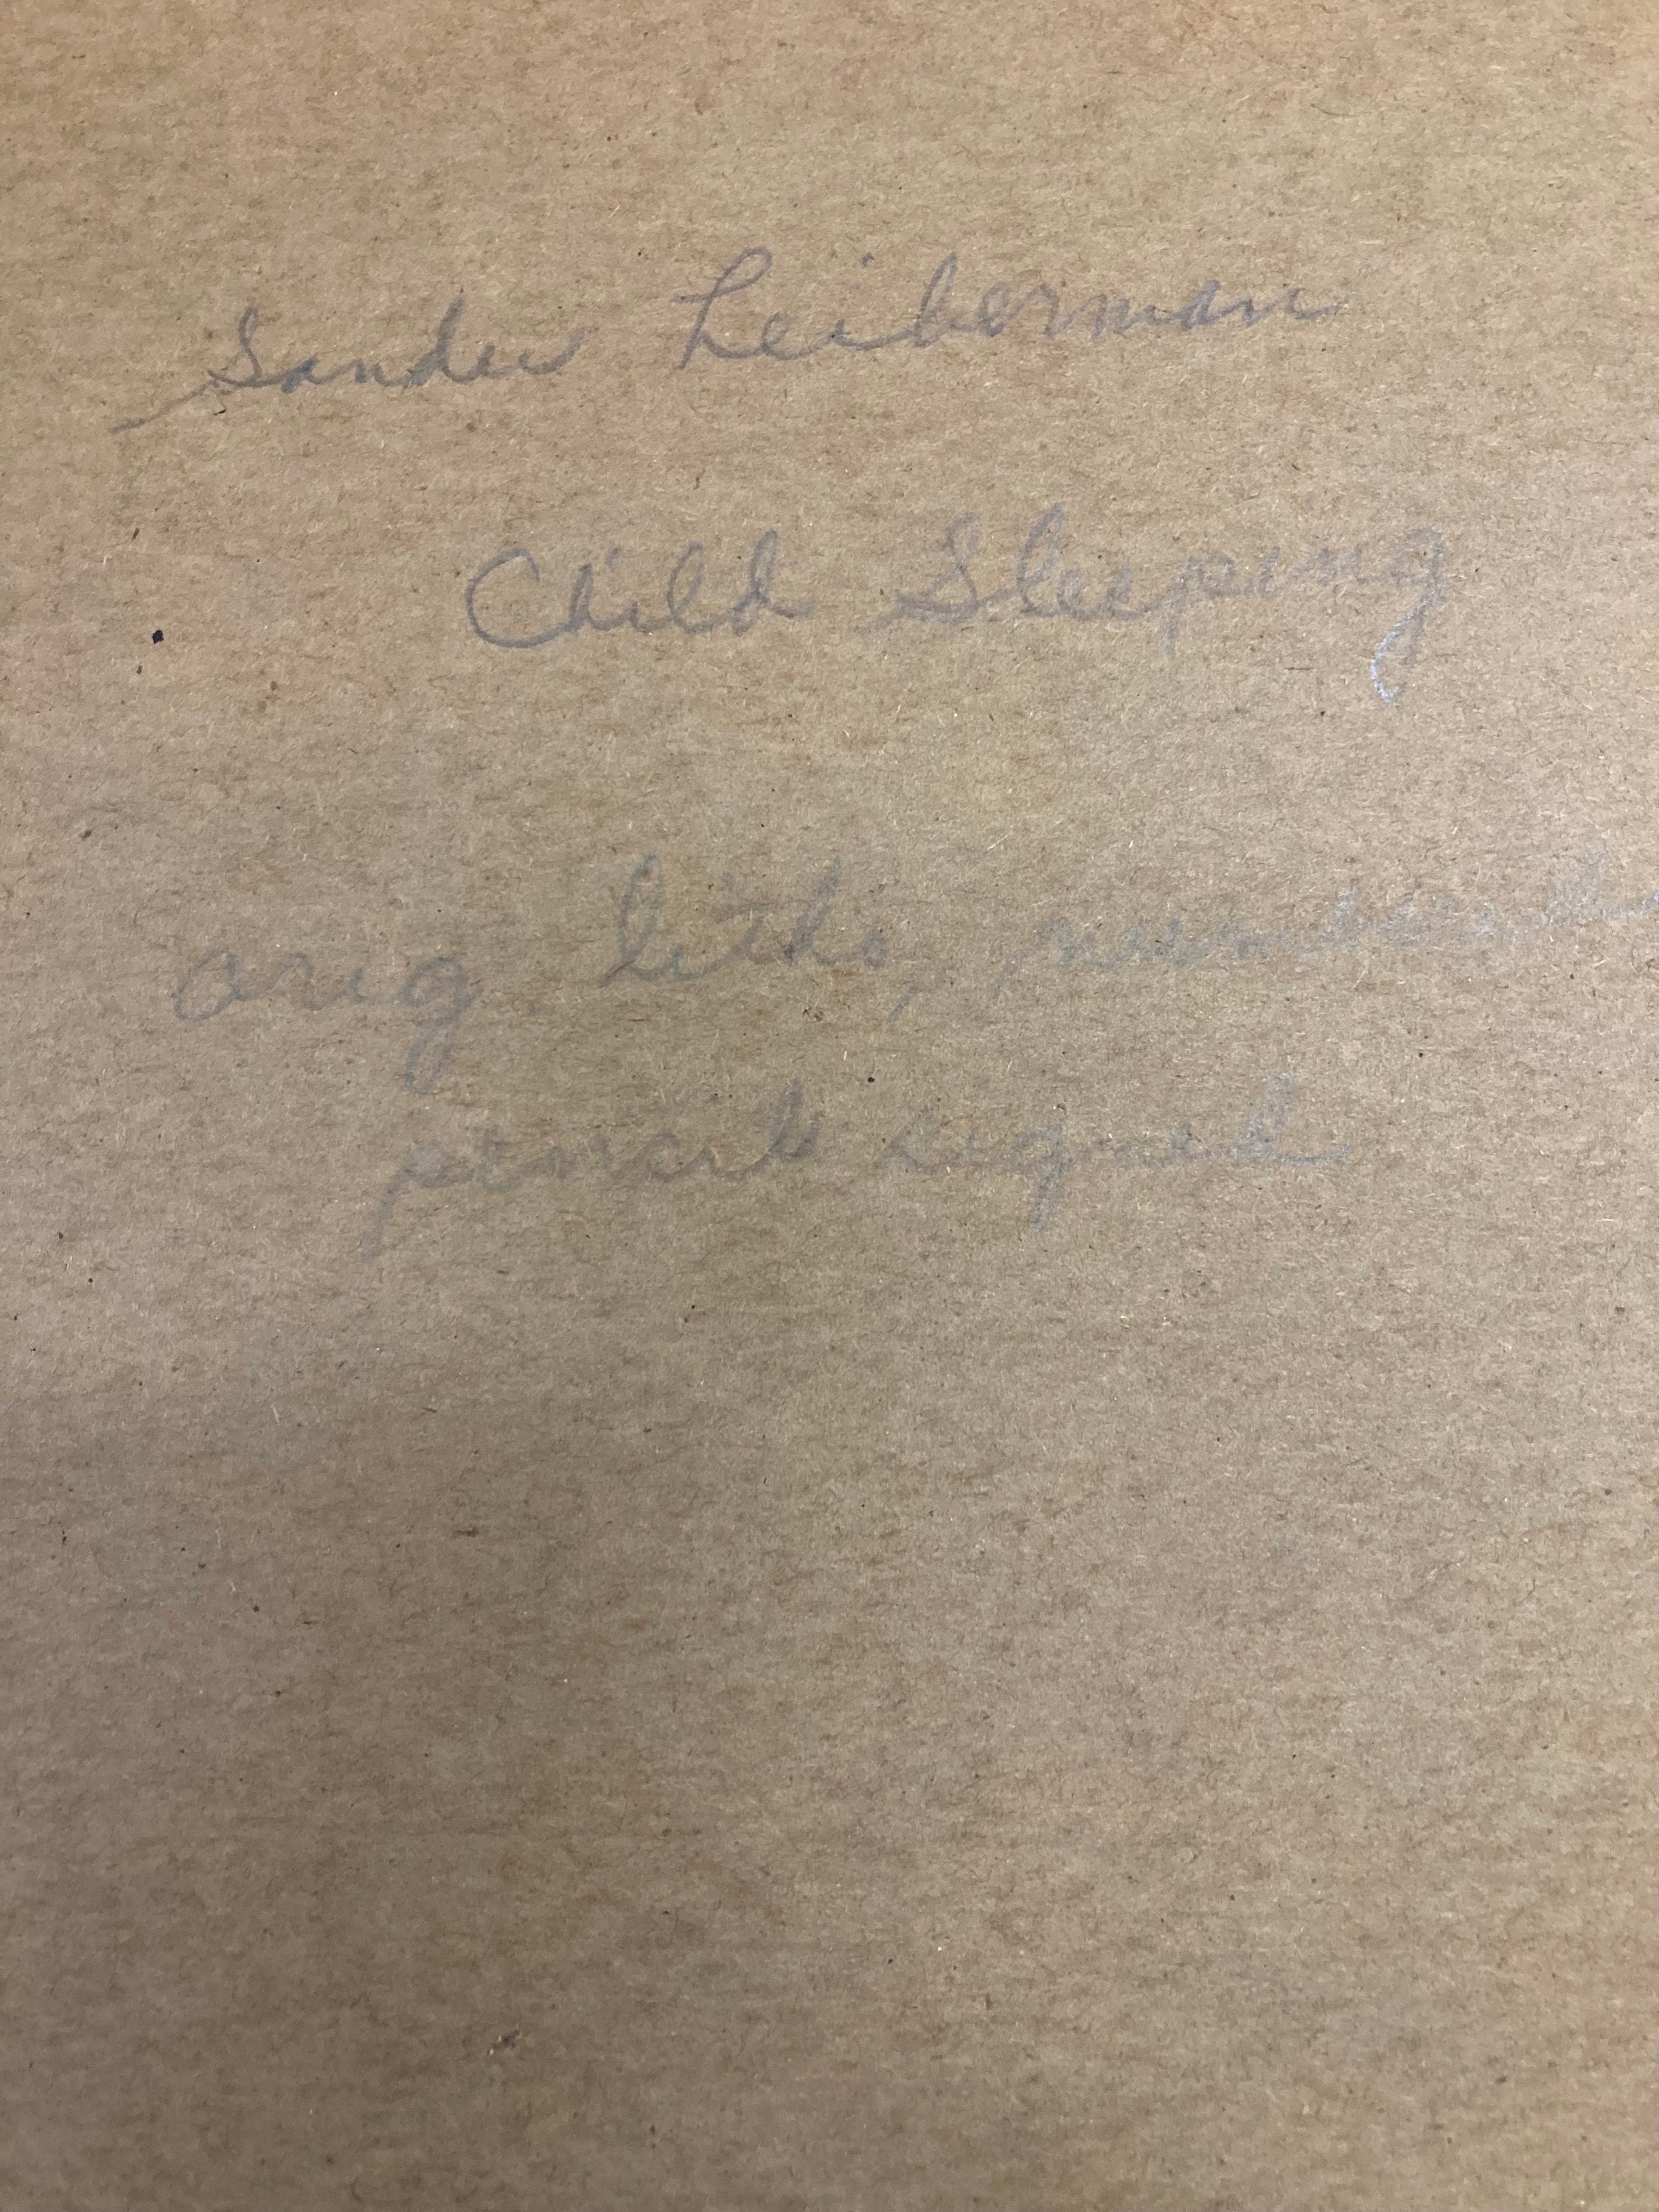 Sander Leiberman
Child Sleeping
orig litho, numbered
pencil signed